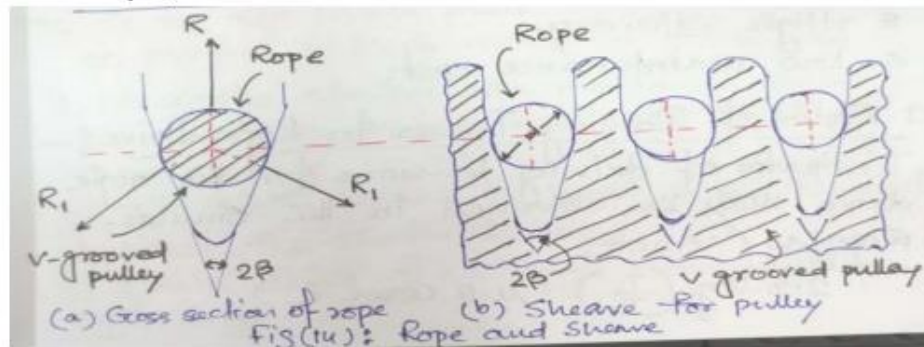 R
Rope
R₁
R₁
V-grooved
pulley
2β
(a) Cross section of rope
Rope
d
2β
V grooved pulley
(b) Sheave for pulley
Fig(14): Rope and Sheave